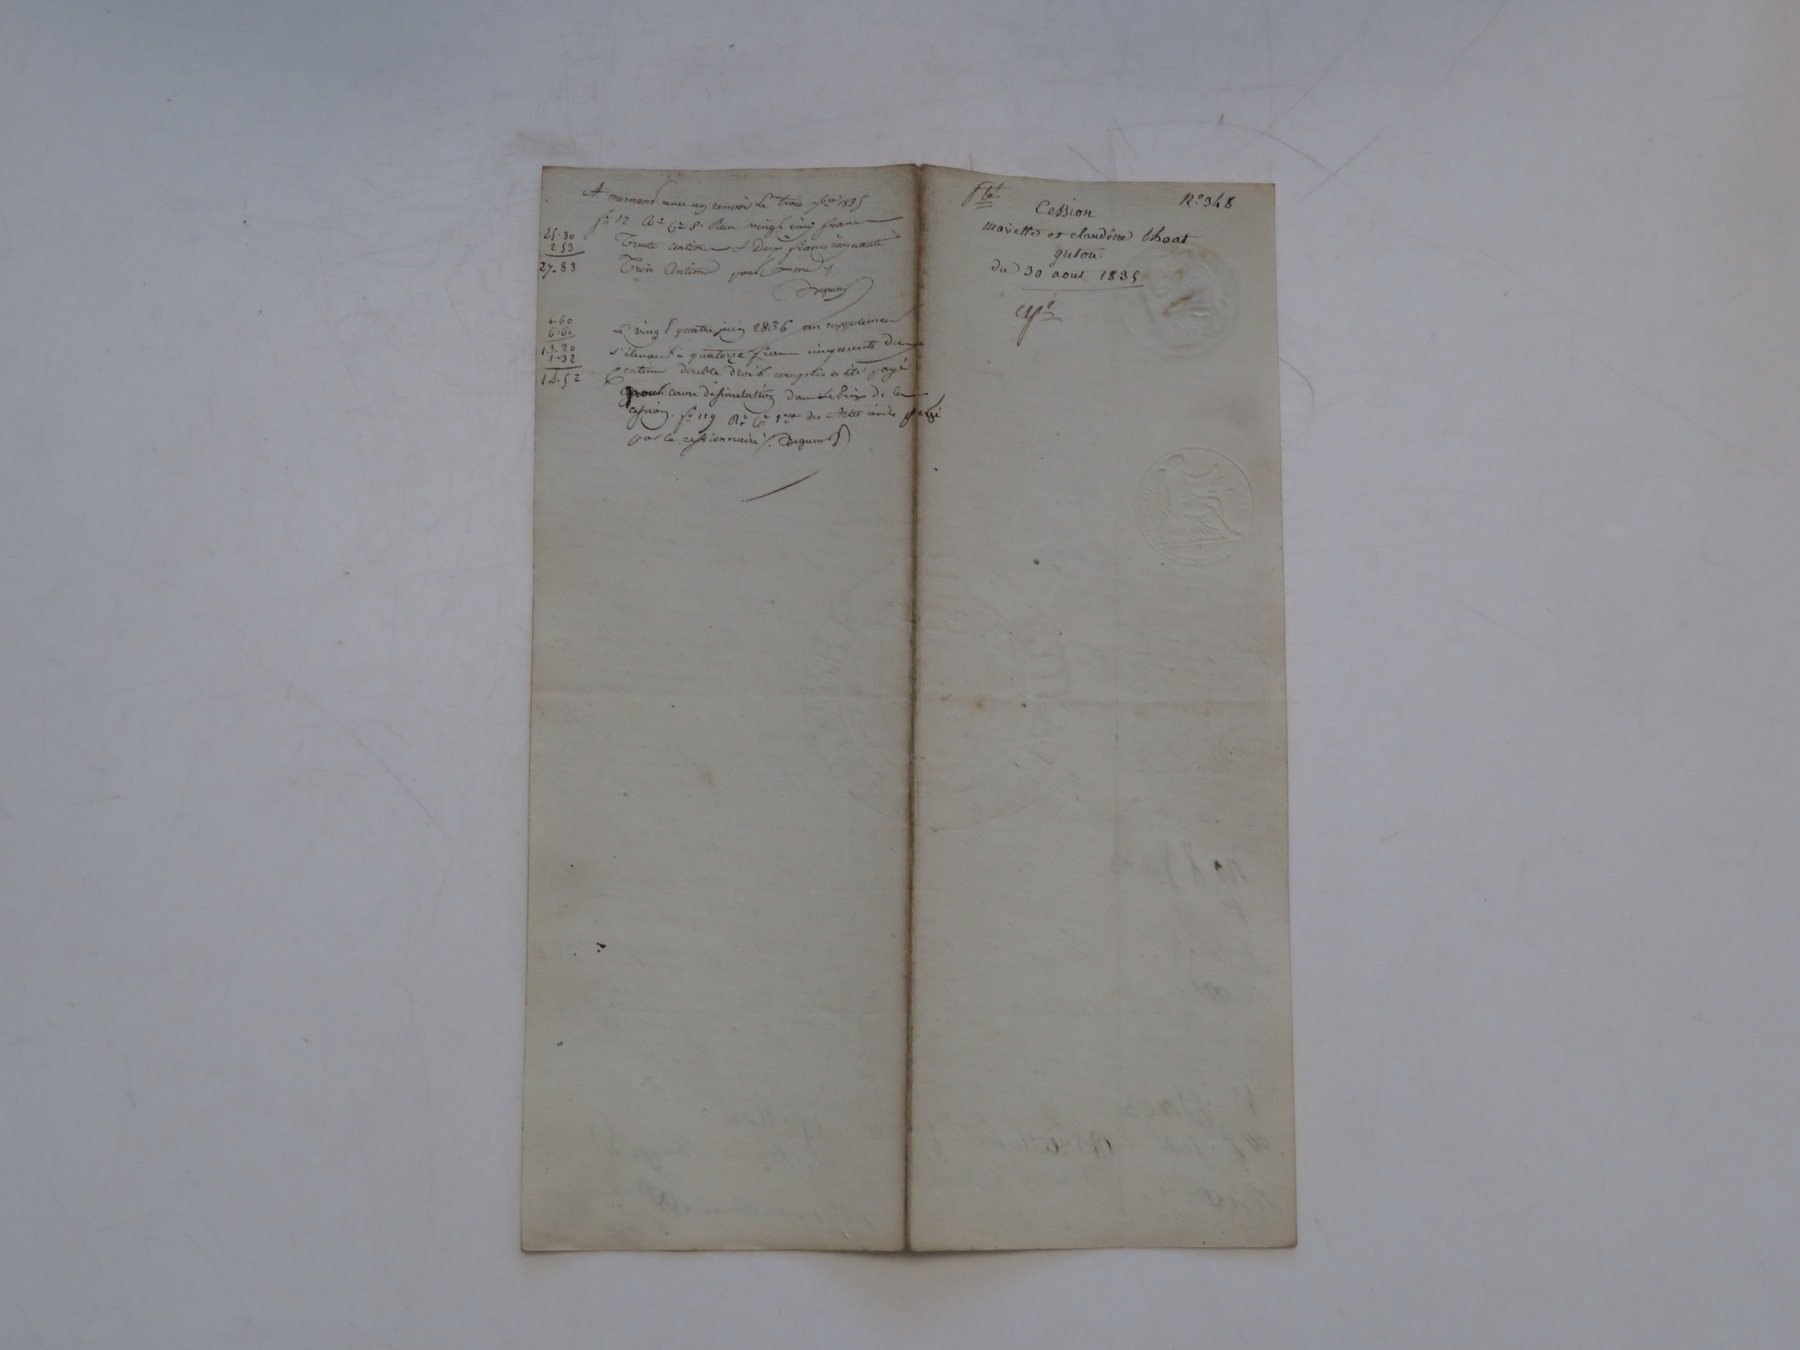 A mornant sans renvoi le trois 7bre 1835
fo 12 Ro Ce 8. Reçu vingt cinq francs
25.30
2.53
27.83
Trente centimes et Deux francs cinquante
Trois centimes pour
6.60
6.60
13.20
1.32
14.52
Le vingt quatre juin 1836 un supplément
s'élevant a quatorze francs cinquante deux
Centimes double droit compris a été payé
pour cause dissimulation dans le Prix de la
cession. fo 119 Ro Ce 1ere des Actes civils
par le cessionnaire
No 348
Cession
mariette et claudine thoat
guton
du 30 aout 1835